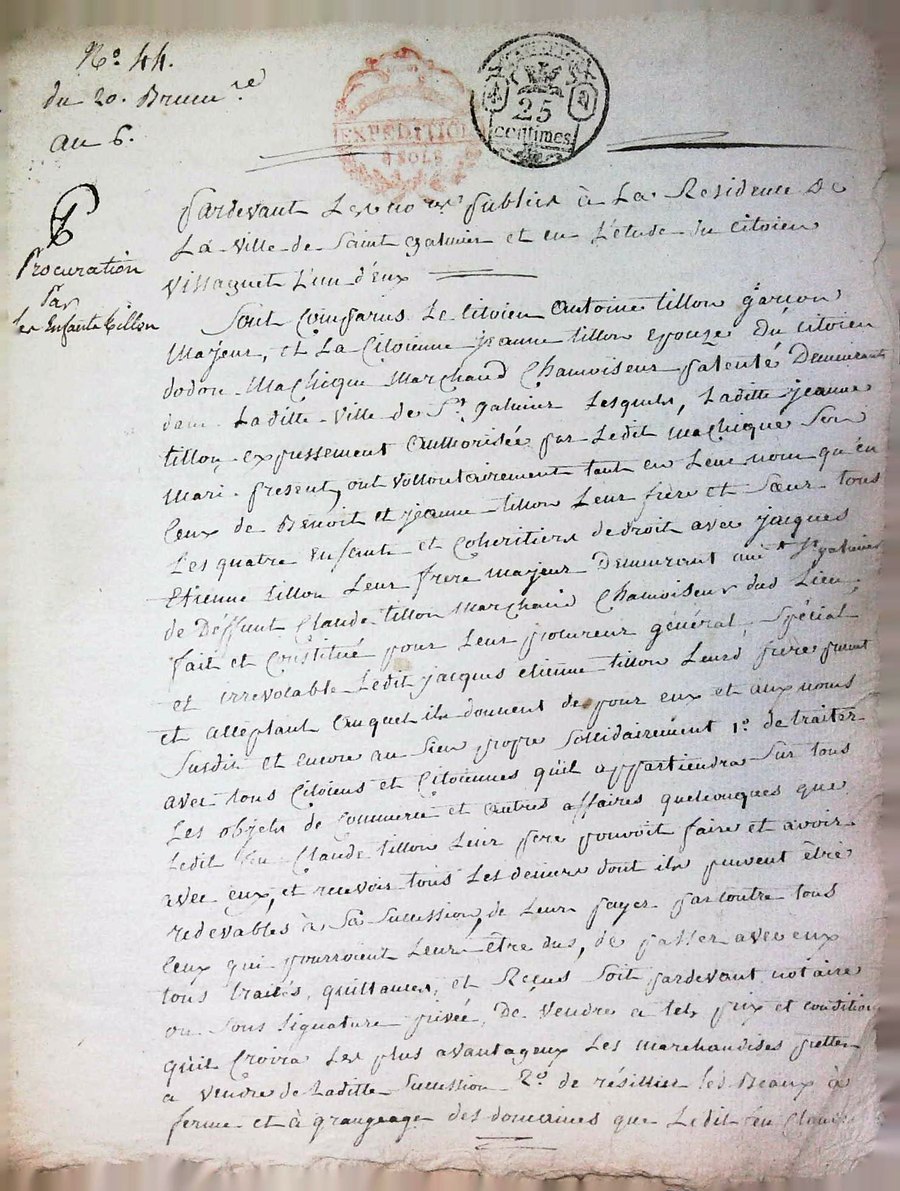 No. 44.
du 20. Brum.re
au 6.
EXPEDITION
8 SOLS
25
centimes
Procuration
Par
les Enfants tillon
Pardevant Les no.res publics à La Residence De
La ville de Saint Galmier et en L'etude du Citoien
Villaguet L'un d'eux
Sont Comparus Le Citoien Antoine tillon garcon
Majeur, et La Citoienne jeanne tillon epouze Du Citoien
dodon Machique Marchand Chamoiseur patenté Demeurants
dans Laditte ville de St. galmier Lesquels, Laditte jeanne
tillon expressement Authorisée par Ledit Machique Son
Mari present, ont vollontairement tant en Leur nom qu'en
Ceux de Benoit et jeanne tillon Leur frère et Sœur tous
Les quatre Enfants et Coheritiers de droit avec jacques
Etienne tillon Leur frere majeur Demeurant St. galmier
de Deffunt Claude tillon Marchand Chamoiseur dud. Lieu,
fait et Constitué pour Leur procureur général, Spécial
et irrevocable Ledit jacques etienne tillon Leurd. frère present
et acceptant auquel ils donnent de pour eux et aux noms
Susdit et encore au Sien propre Sollidairement 1o. de traiter
avec tous Citoiens et Citoiennes qu'il appartiendra Sur tous
Les objets de Commerce et autres affaires quelconques que
Ledit feu Claude tillon Leur pere pouvoit faire et avoir
avec eux, et recevoir tous Les deniers dont ils peuvent être
redevables à Sa Succession, de Leur payer parcontre tous
Ceux qui pourroient Leur être dus, de passer avec eux
tous traités, quittances, et Reçus Soit pardevant notaire
ou Sous Signature privée, De vendre a tels prix et condition
qu'il Croira Les plus avantageux Les marchandises prettes
a vendre de Laditte Succession 2o. de résillier les Beaux à
ferme et à grangeage des domaines que Ledit feu Claude